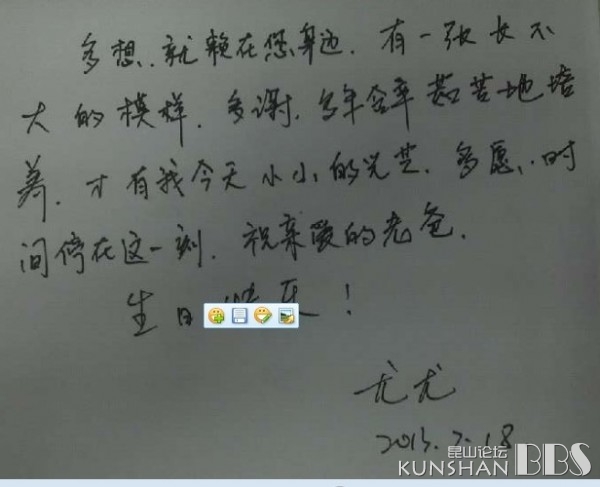 多想.就赖在您身边.有一张长不
大的模样.多谢.多年含辛茹苦地培
养.才有我今天小小的光芒.多愿.时
间停在这一刻.祝亲爱的老爸.
生日快乐!
尤尤
2013.2.18
昆山论坛
KUNSHAN BBS